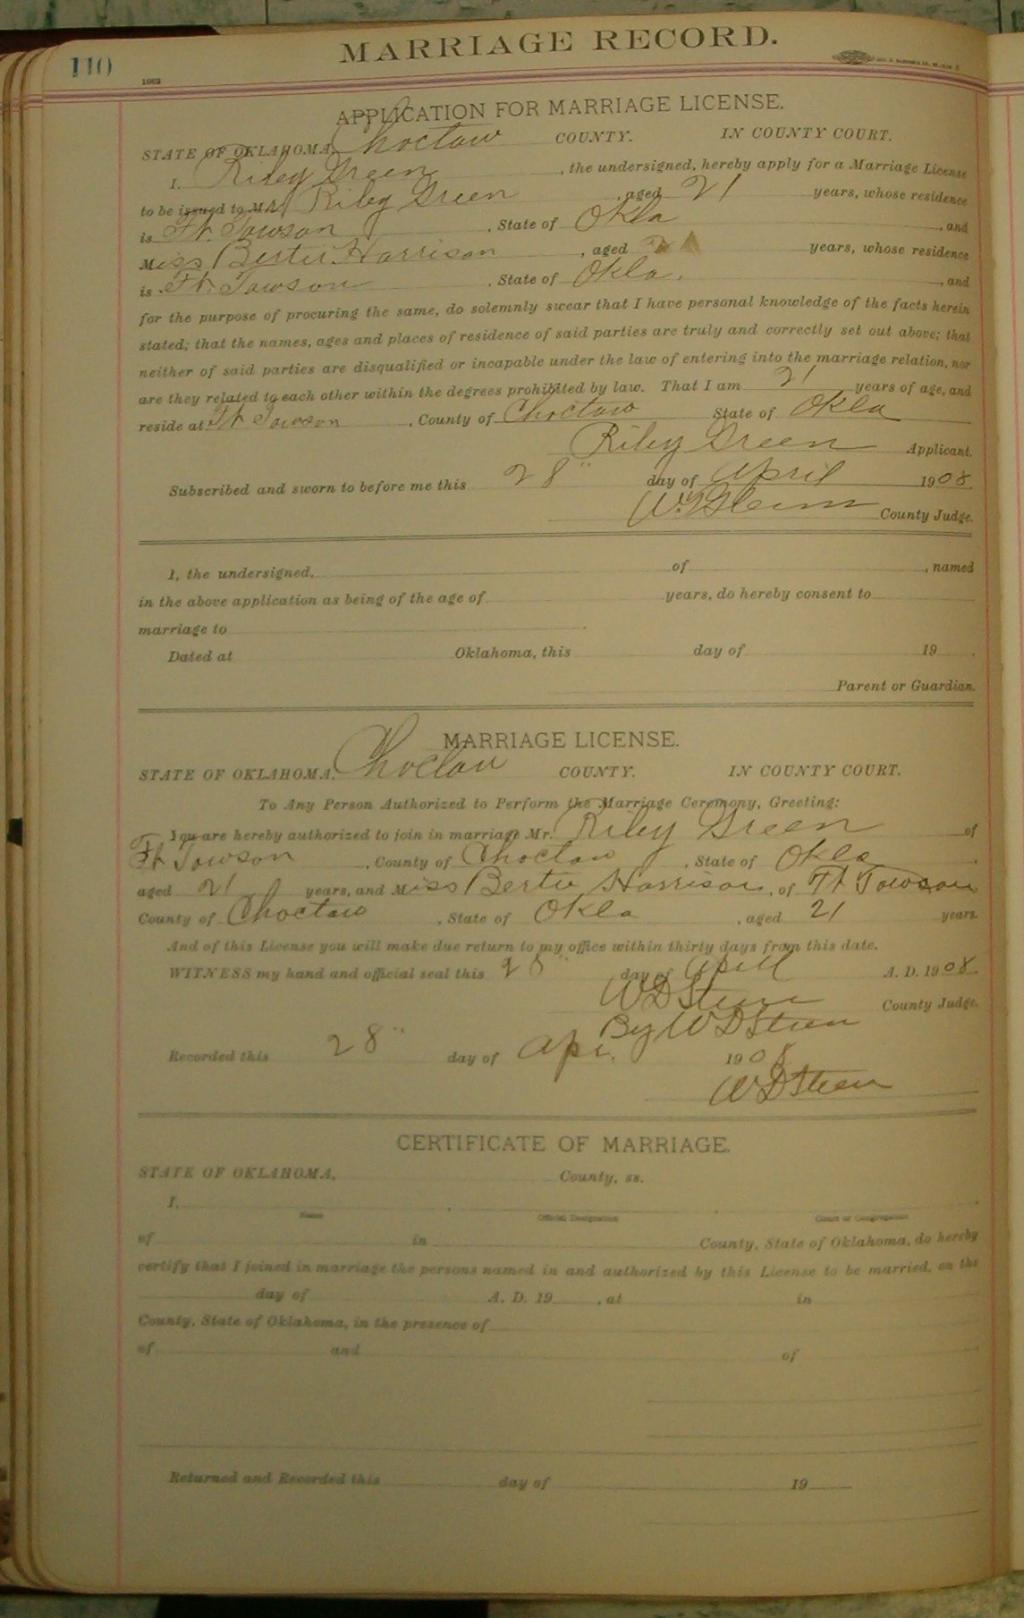 110
MARRIAGE RECORD.
1062
APPLICATION FOR MARRIAGE LICENSE.
STATE OF OKLAHOMA, Choctaw COUNTY. IN COUNTY COURT.
I, Riley Green, the undersigned, hereby apply for a Marriage License
to be issued to Mr. Riley Green, aged 21 years, whose residence
is Ft. Towson, State of Okla, and
Miss Bertie Harrison, aged years, whose residence
is Ft. Towson, State of Okla., and
for the purpose of procuring the same, do solemnly swear that I have personal knowledge of the facts herein
stated; that the names, ages and places of residence of said parties are truly and correctly set out above; that
neither of said parties are disqualified or incapable under the law of entering into the marriage relation, nor
are they related to each other within the degrees prohibited by law. That I am 21 years of age, and
reside at Ft Towson, County of Choctaw State of Okla
Riley Green Applicant.
Subscribed and sworn to before me this 28" day of April 1908.
County Judge.
I, the undersigned, of , named
in the above application as being of the age of years, do hereby consent to
marriage to
Dated at Oklahoma, this day of 19 .
Parent or Guardian.
MARRIAGE LICENSE.
STATE OF OKLAHOMA, Choctaw COUNTY. IN COUNTY COURT.
To Any Person Authorized to Perform the Marriage Ceremony, Greeting:
You are hereby authorized to join in marriage Mr. Riley Green of
Ft Towson, County of Choctaw, State of Okla,
aged 21 years, and Miss Bertie Harrison, of Ft Towson
County of Choctaw, State of Okla, aged 21 years.
And of this License you will make due return to my office within thirty days from this date.
WITNESS my hand and official seal this 28" day of April A. D. 1908.
W D Steen County Judge.
By W D Steen
Recorded this 28" day of Apr. 1908
W D Steen
CERTIFICATE OF MARRIAGE.
STATE OF OKLAHOMA, County, ss.
I, , ,
Name Official Designation Court or Congregation
of in County, State of Oklahoma, do hereby
certify that I joined in marriage the persons named in and authorized by this License to be married, on the
day of A. D. 19 , at in
County, State of Oklahoma, in the presence of
of and of
Returned and Recorded this day of 19